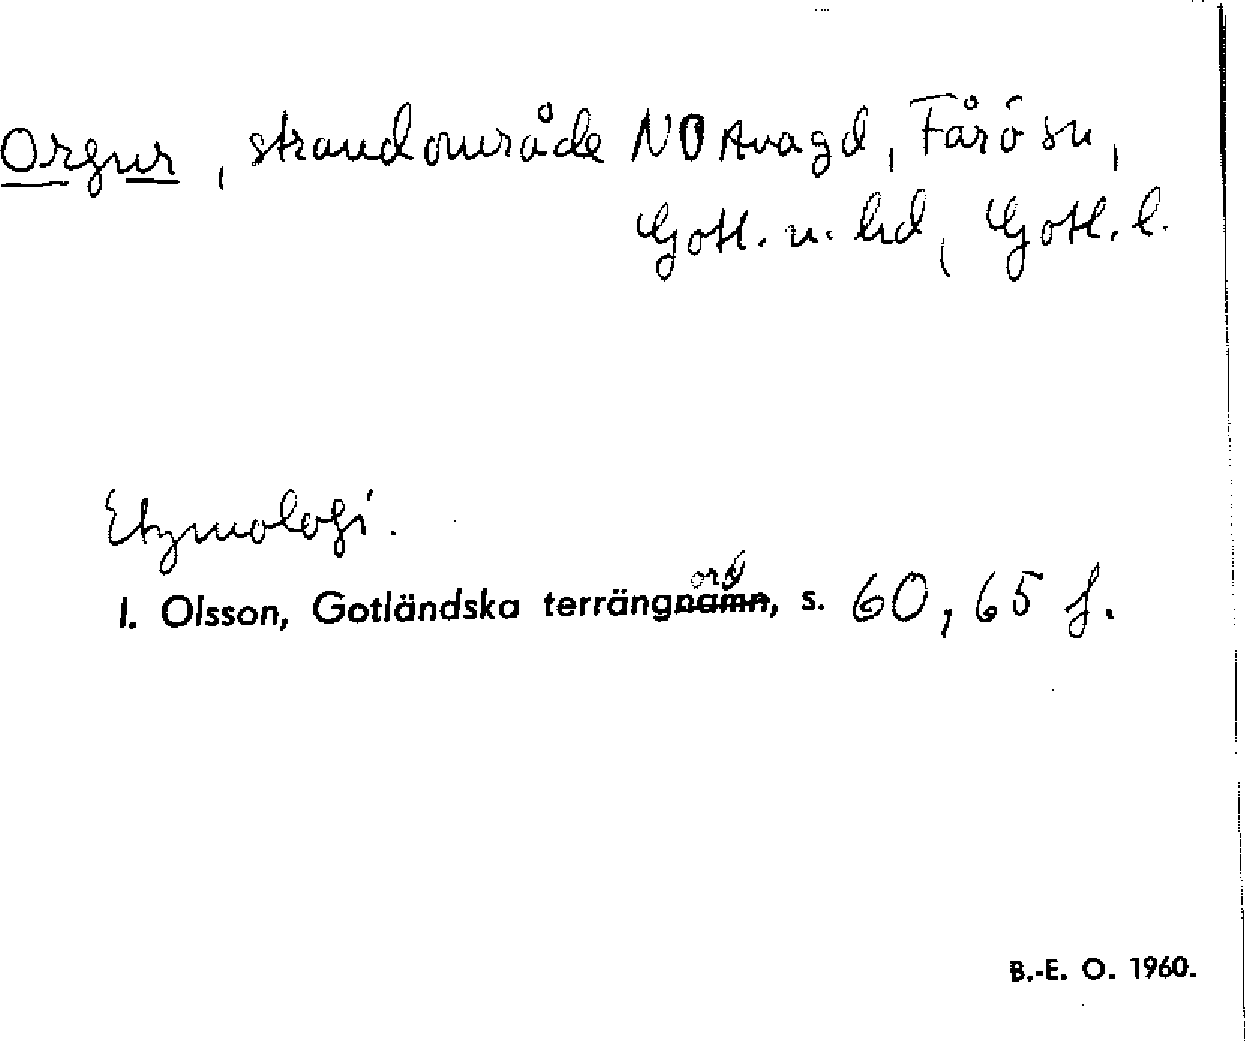 Orgur, strandområde NO Avagd, Fårö sn,
Gotl. n. hd, Gotl. l.
Etymologi.
ord
I. Olsson, Gotländska terrängnamn, s. 60, 65 f.
B.-E. O. 1960.